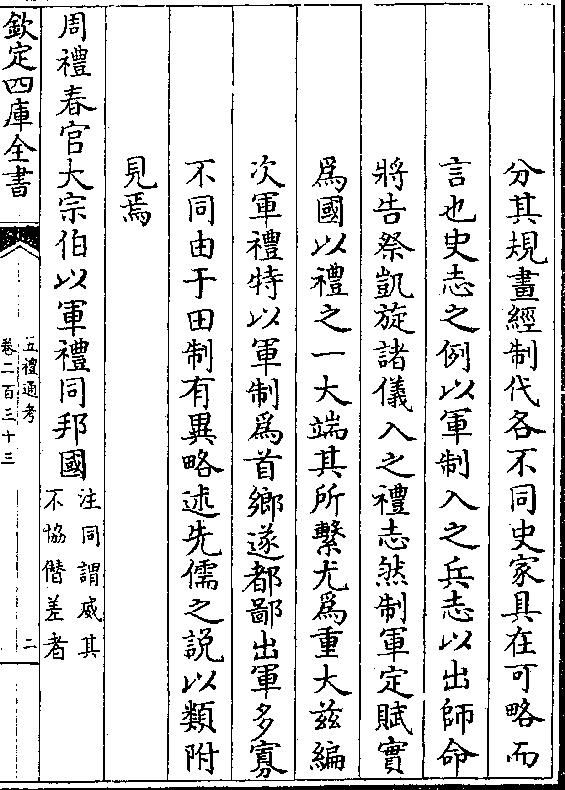 分其規畫經制代各不同史家具在可略而
言也史志之例以軍制入之兵志以出師命
將告祭凱旋諸儀入之禮志然制軍定賦實
爲國以禮之一大端其所繫尤爲重大兹編
次軍禮特以軍制爲首鄉遂都鄙出軍多寡
不同由于田制有異略述先儒之説以類附
見焉
周禮春官大宗伯以軍禮同邦國
注同謂威其
不協僭差者
欽定四庫全書
五禮通考
卷二百三十三
二